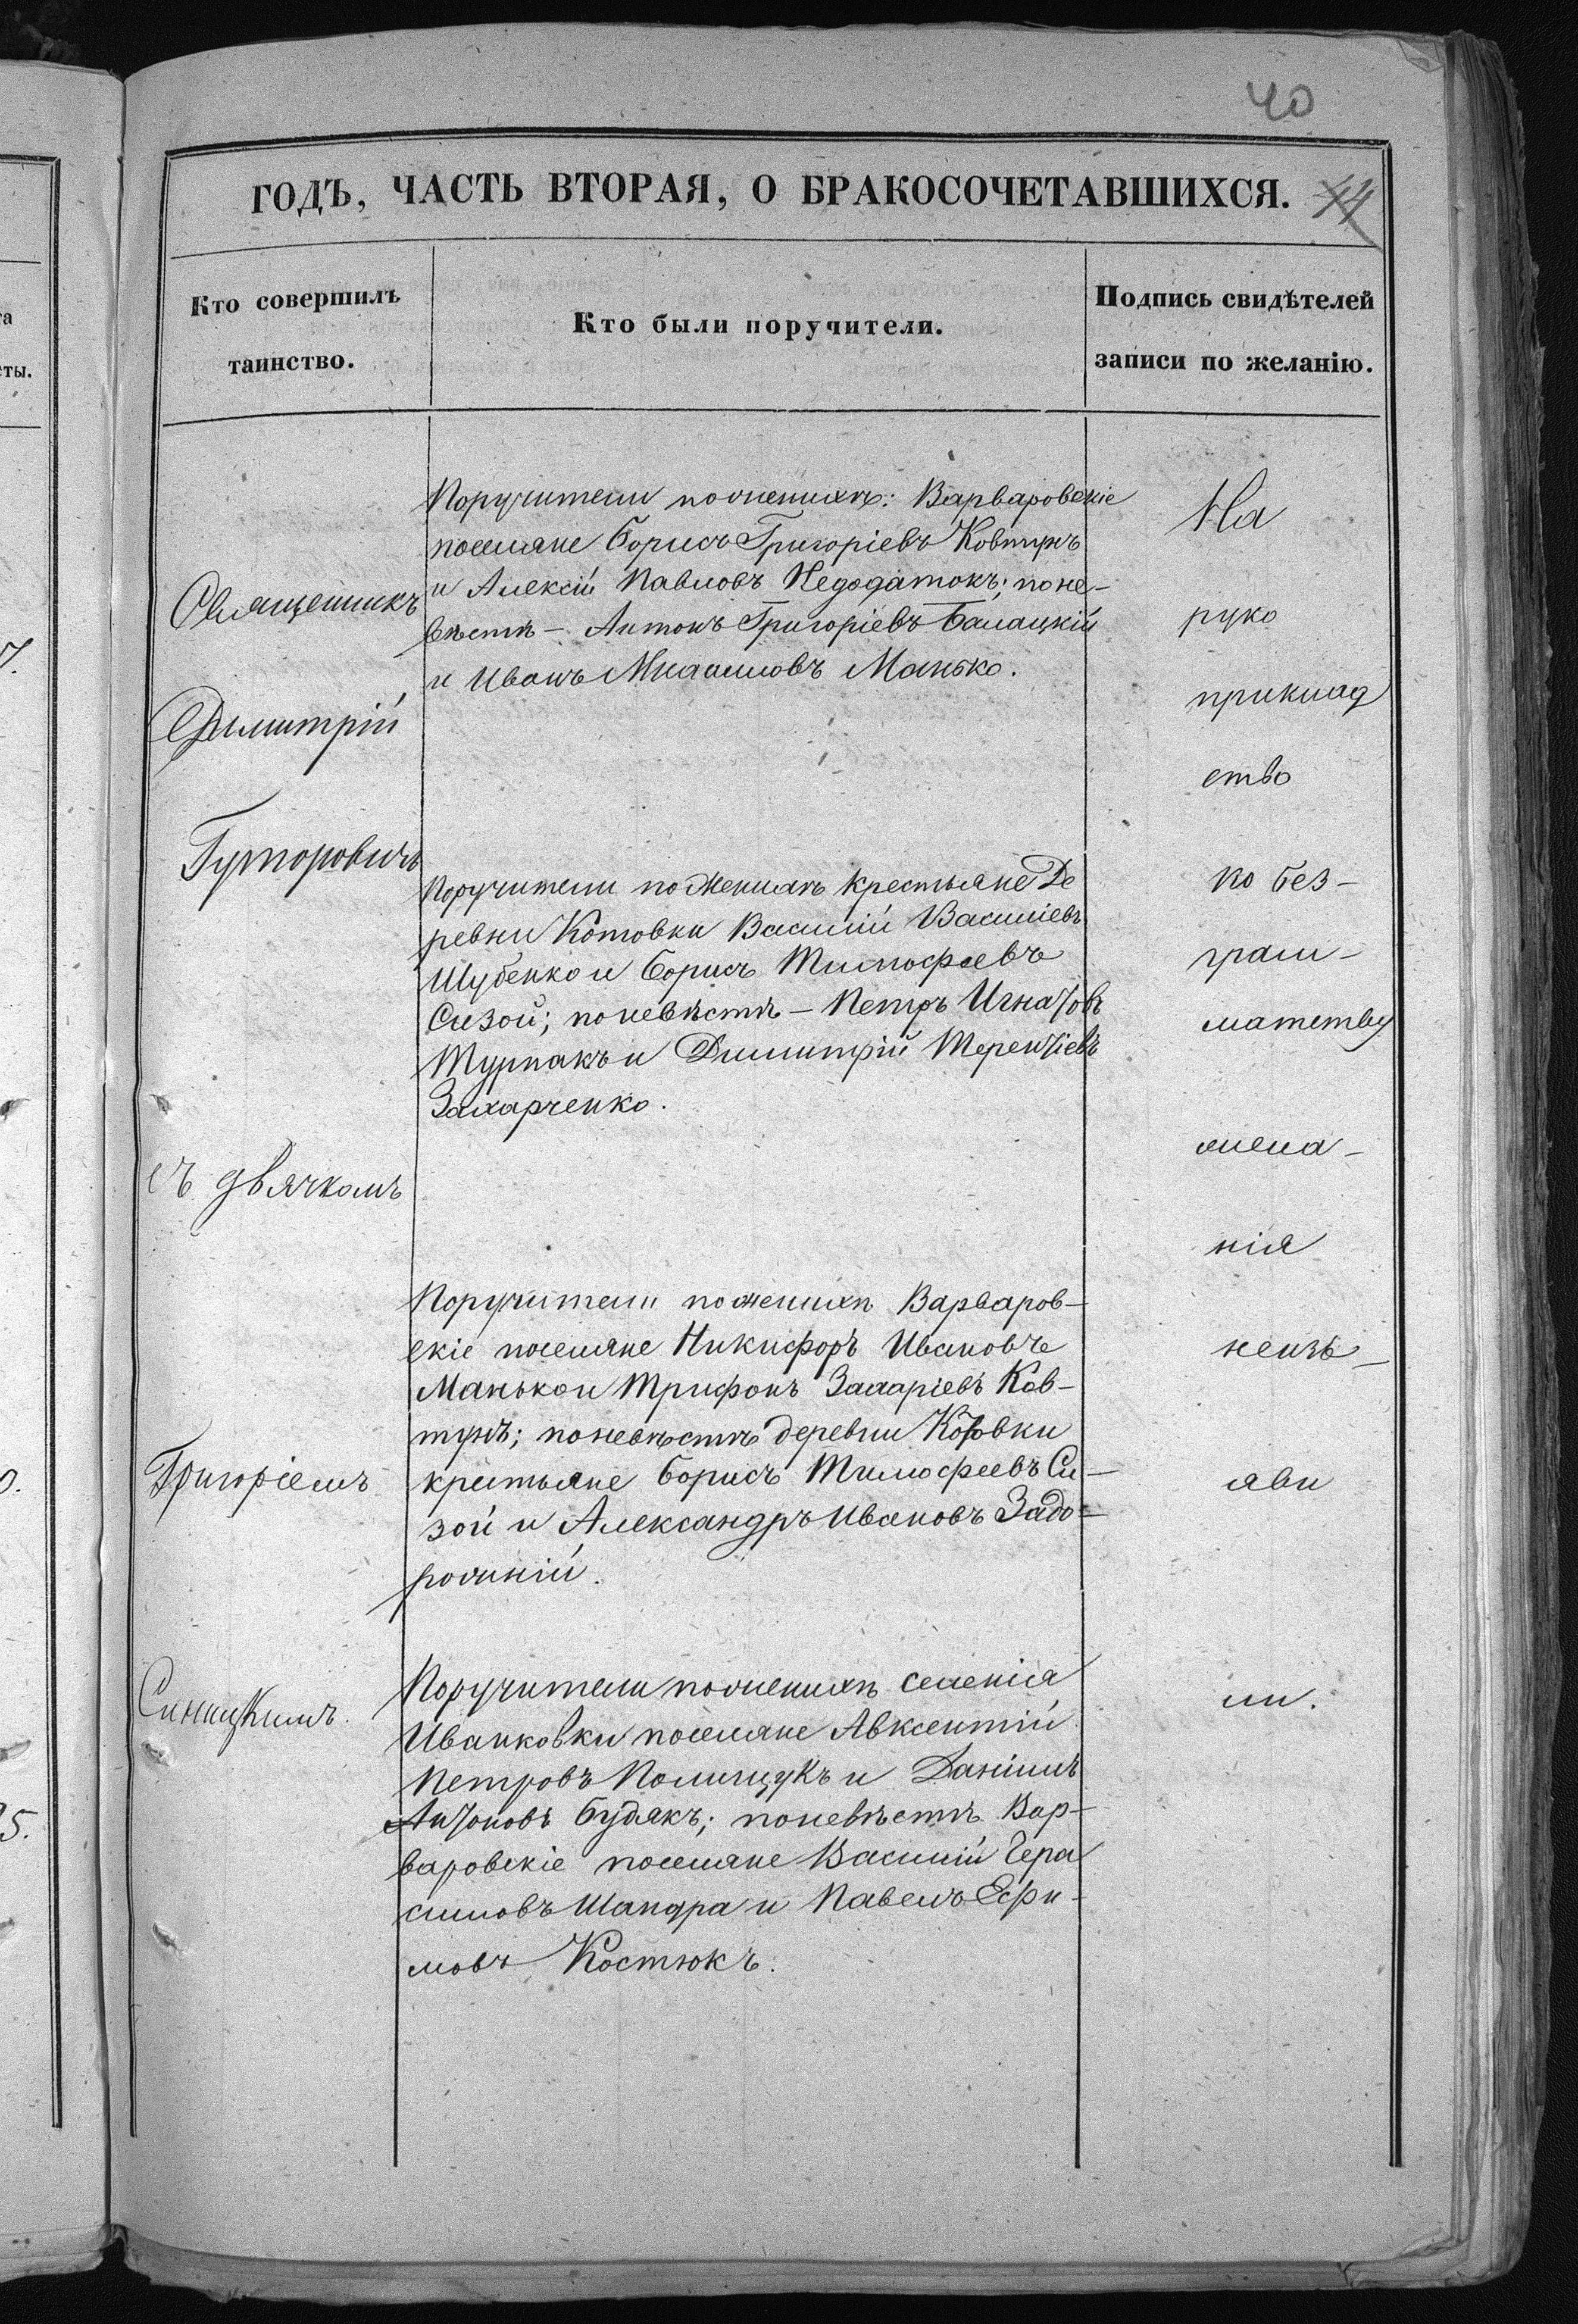 40
ГОДЪ, ЧАСТЬ ВТОРАЯ, О БРАКОСОЧЕТАВШИХСЯ.
Кто совершилъ
таинство.
Кто были поручители.
Подпись свидѣтелей
записи по желанію.
Священникъ
Димитрій
Гуторовичъ
съ дьячкомъ
Григоріемъ
Синицкимъ.
Поручители по женихѣ: Варваровскіе
поселяне Борисъ Григоріевъ Ковтунъ
и Алексій Павловъ Недодатокъ; по не-
вѣстѣ – Антонъ Григоріевъ Балацкій
и Иванъ Михаиловъ Манько.
Поручители по женихѣ крестьяне де
ревни Котовки Василій Василіевъ
Шубенко и Борисъ Тимофеевъ
Сизой; по невѣстѣ – Петръ Игнатовъ
Турпакъ и Димитрій Терентіевъ
Захарченко.
Поручители по женихѣ Варваров-
скіе поселяне Никифоръ Ивановъ
Манько и Трифонъ Захаріевъ Ков-
тунъ; по невѣстѣ деревни Котовки
крестьяне Борисъ Тимофеевъ Си-
зой и Александръ Ивановъ Задо-
рожній.
Поручители по женихѣ селенія
Иванковки поселяне Авксентій
Петровъ Полищукъ и Даніилъ
Антоновъ Будякъ; по невѣстѣ Вар-
варовскіе поселяне Василій Гера
симовъ Шандра и Павелъ Ефи-
мовъ Костюкъ.
На
руко
приклад
ство
по без-
грам-
матству
жела-
нія
неизъ-
яви
ли.
та
сты.
7.
0.
5.